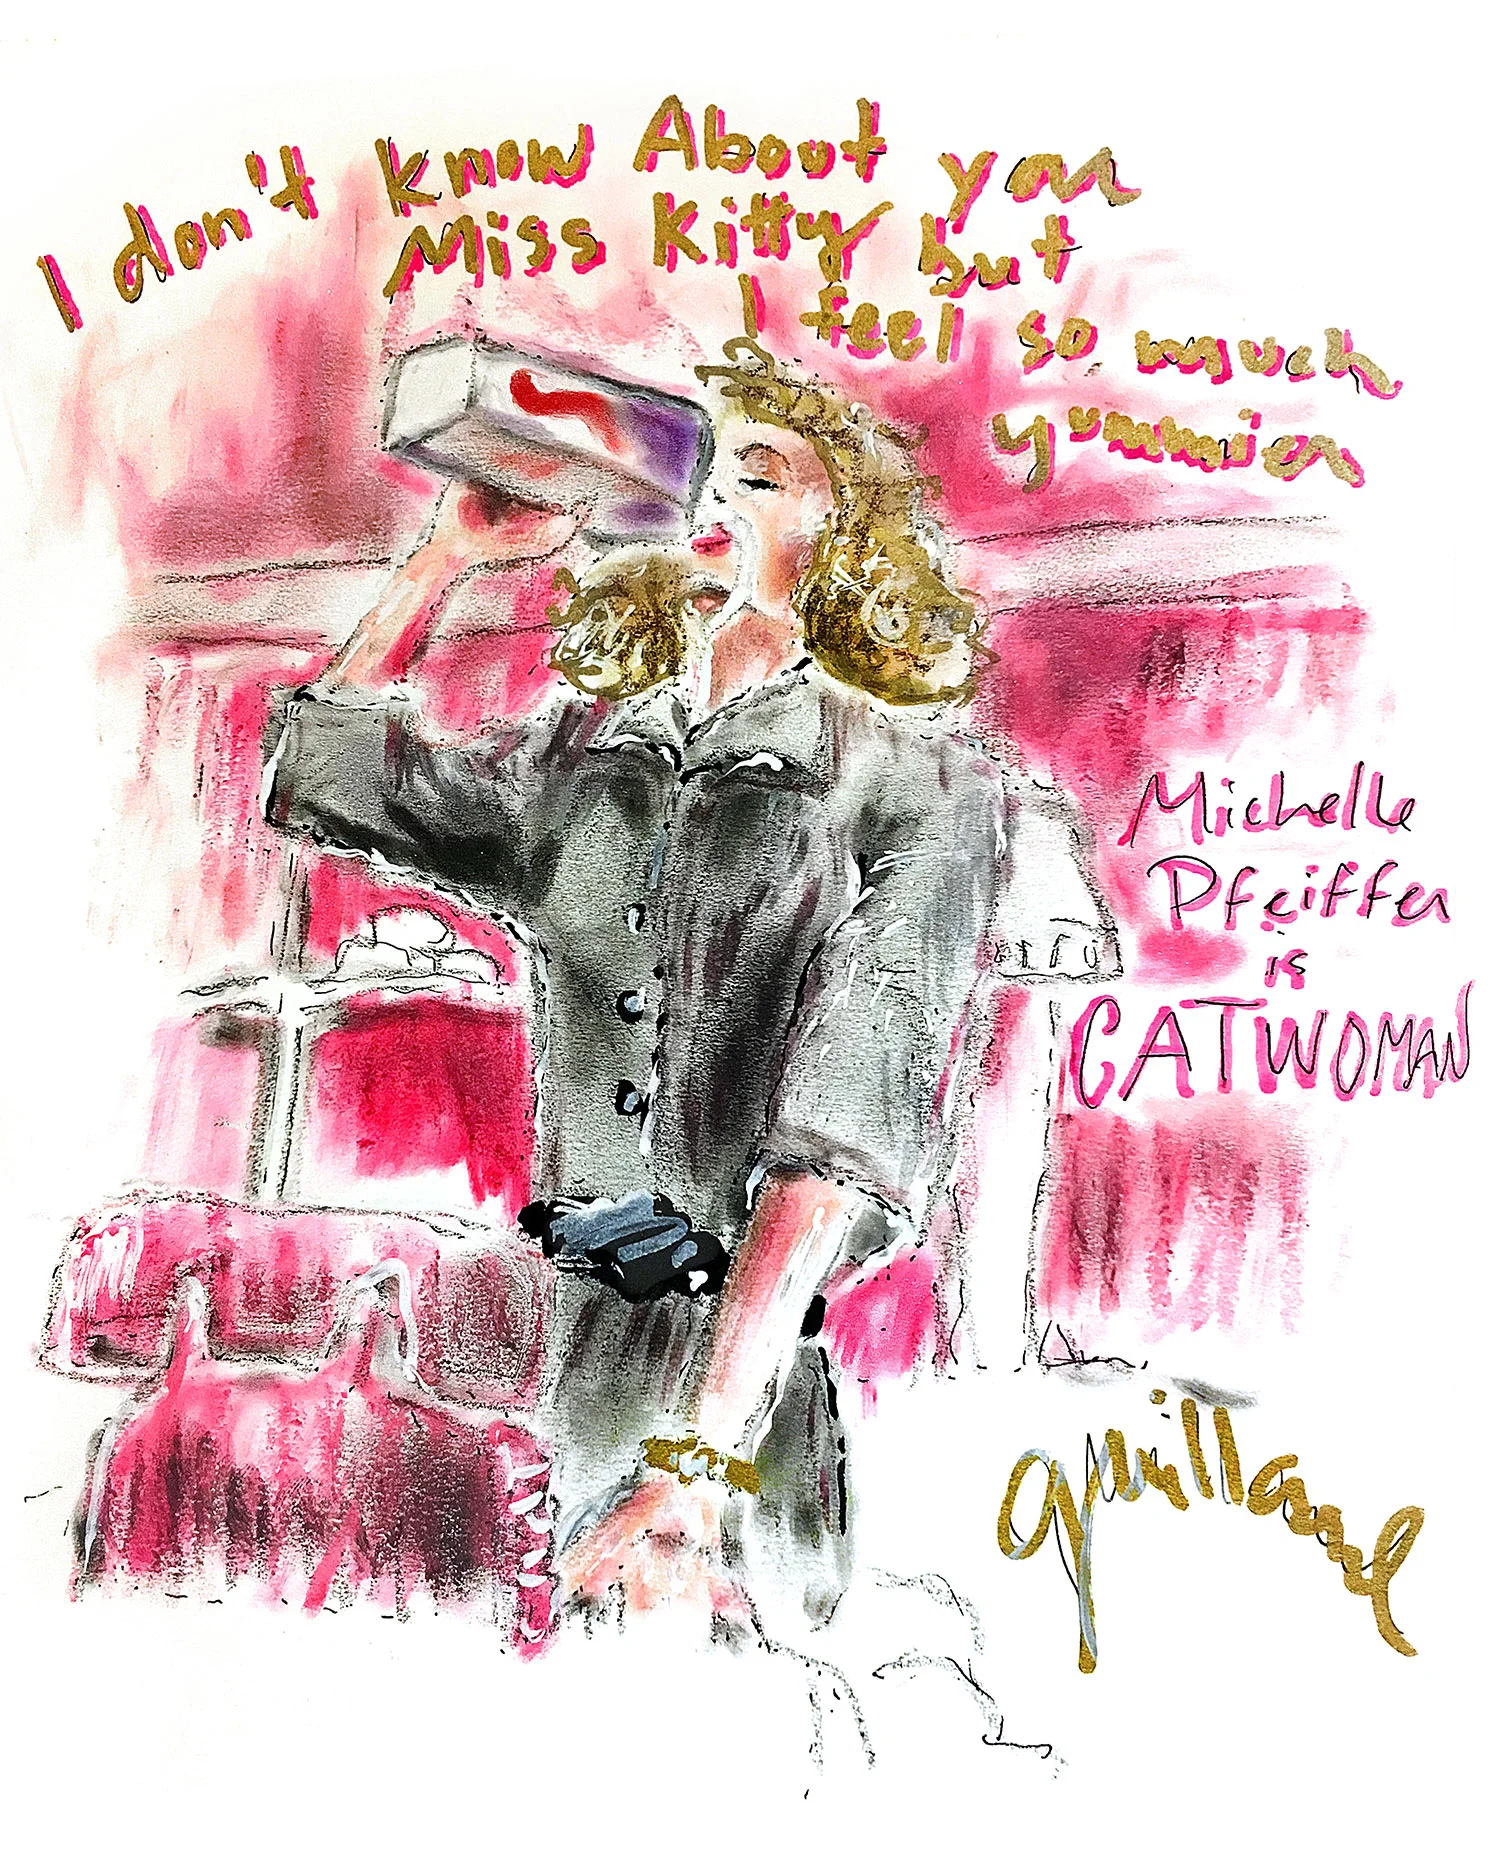 I don't know About you
Miss Kitty but
I feel so much
yummier
Michelle
Pfeiffer
is
CATWOMAN